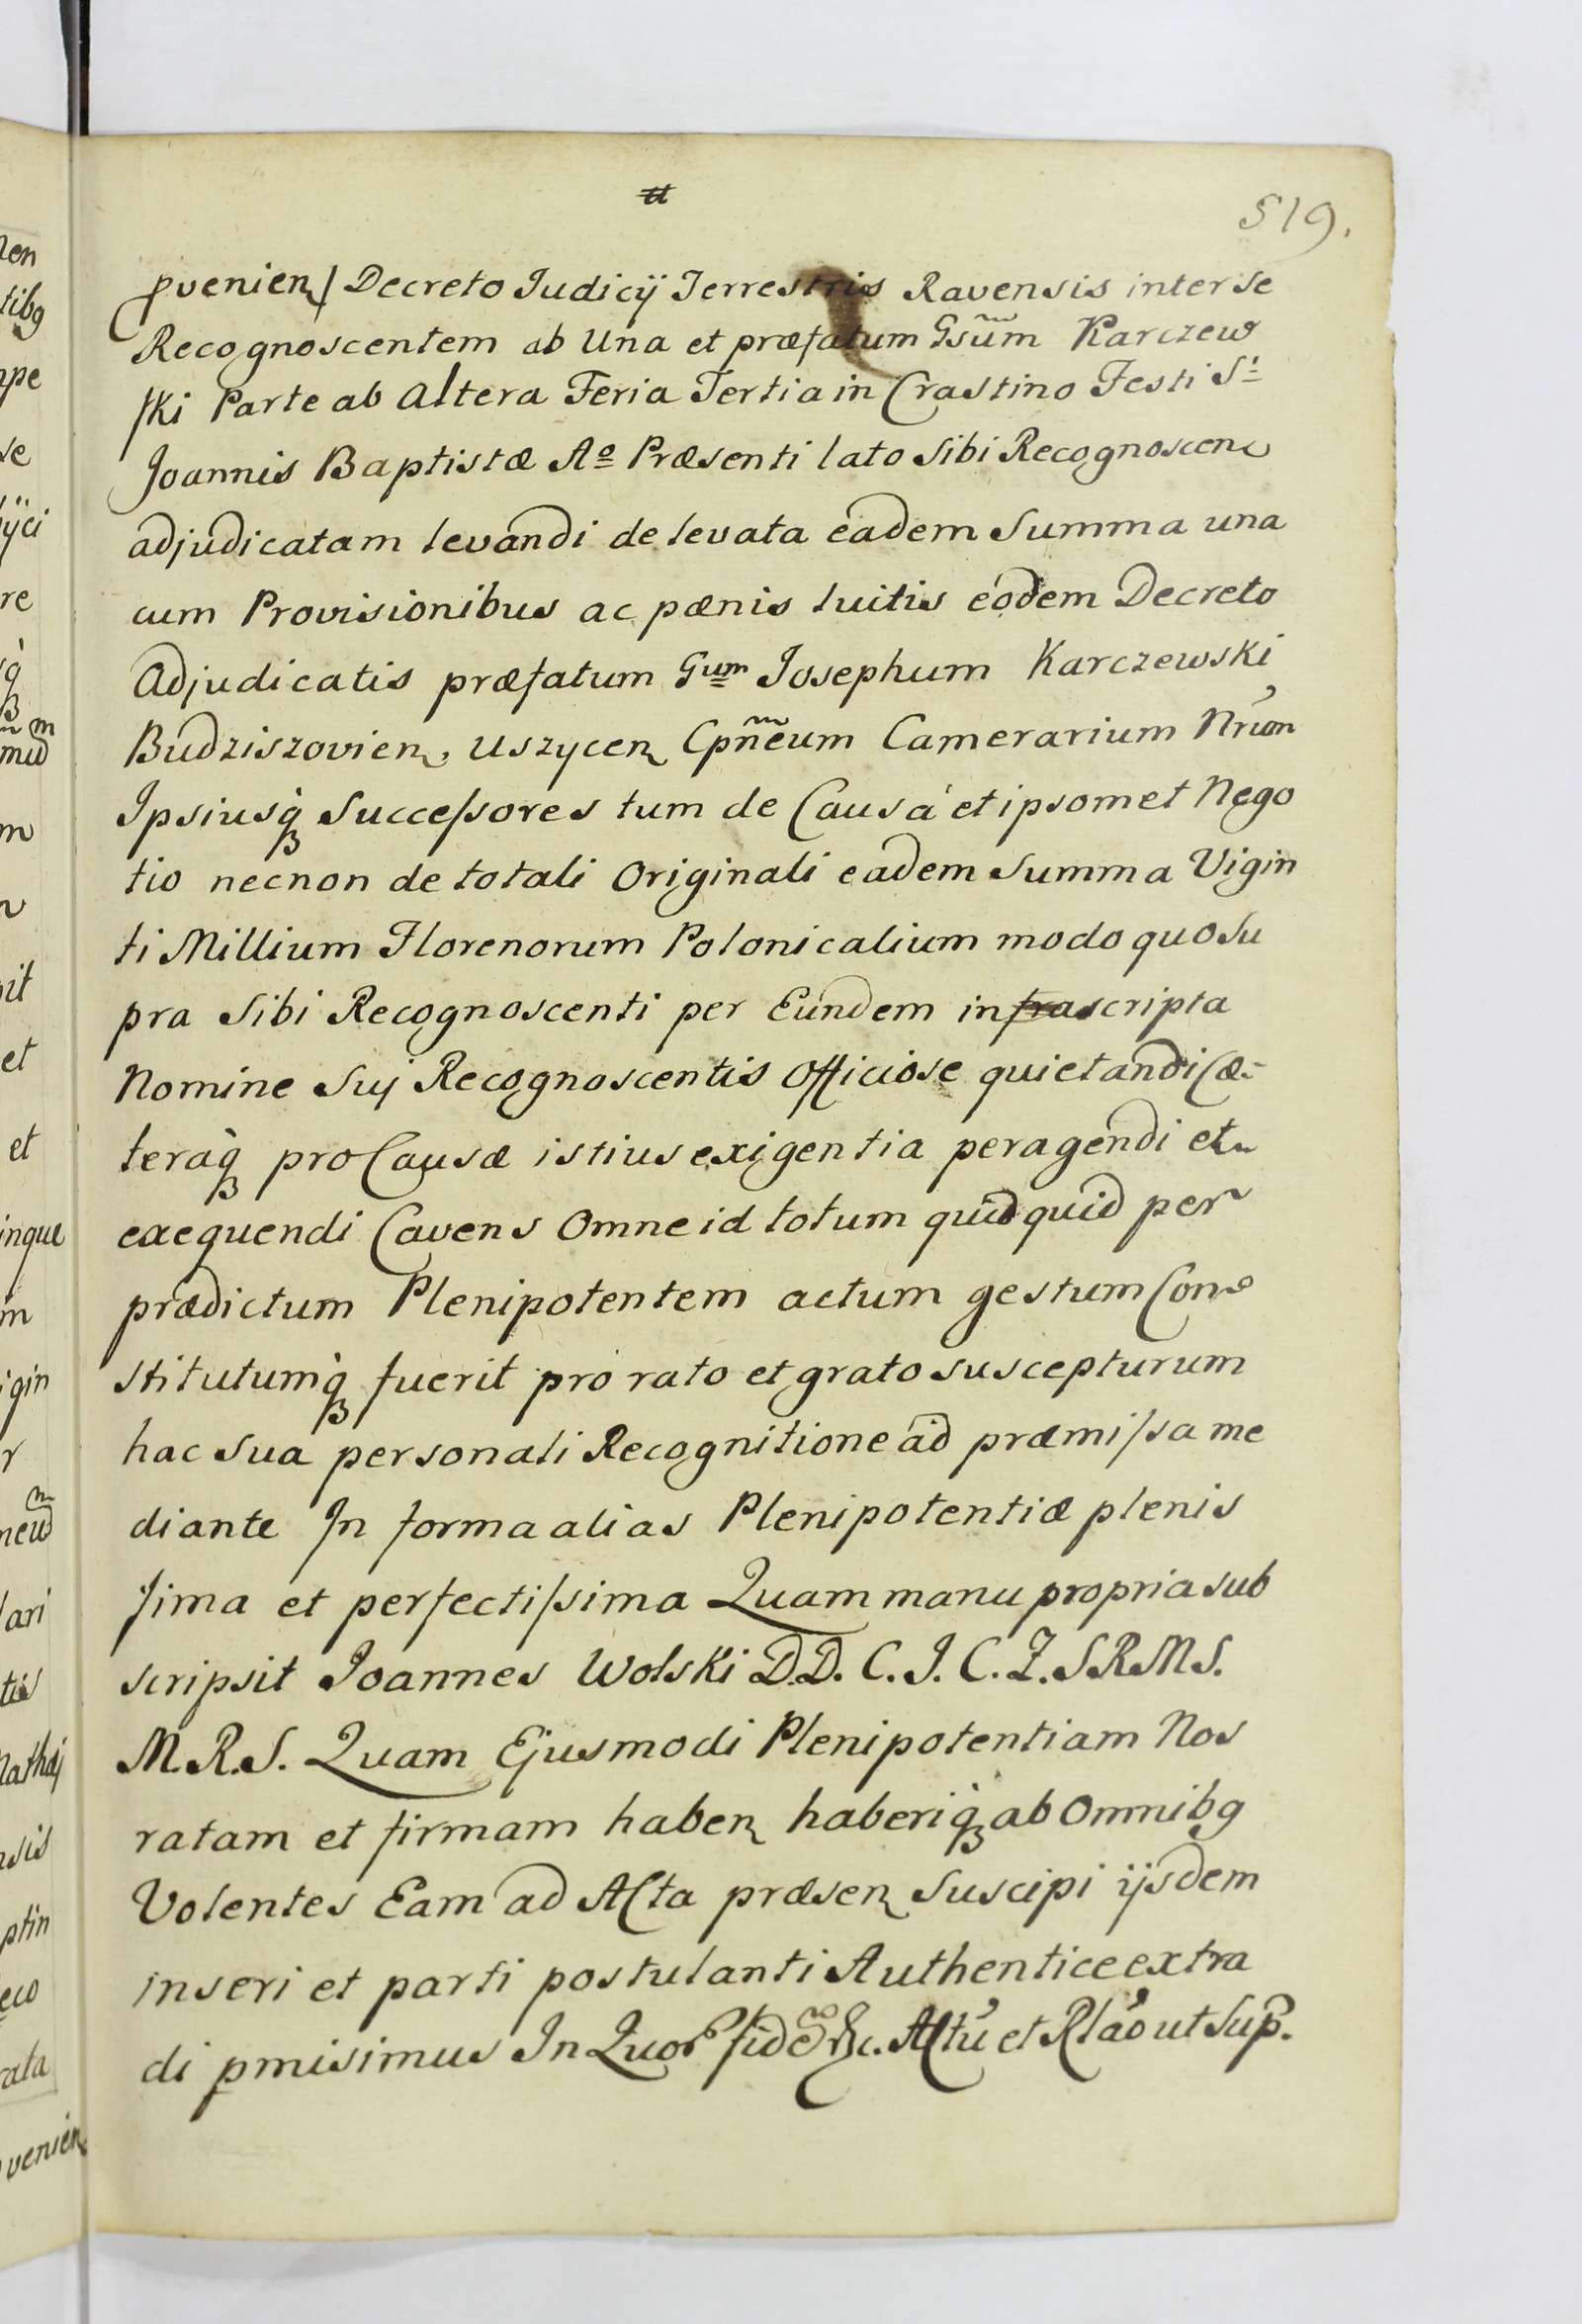 519.
pvenien) Decreto Judicÿ Terrestris Ravensis inter se
Recognoscentem ab Una et præfatum Gsum̃ Karczew
ski Parte ab altera Feria Tertia in Crastino Festi S:
Joannis Baptistæ Aº Præsenti lato Sibi Recognoscen
adjudicatam levandi de levata eadem Summa una
cum Provisionibus ac pænis luitis eodem Decreto
Adjudicatis præfatum Gum Josephum Karczewski
Budziszovien, Uszycen Cpñeum Camerarium Nrum
Ipsiusq̀ Successores tum de Causà et ipsomet Nego
tio necnon de totali Originali eadem Summa Vigin
ti Millium Florenorum Polonicalium modo quo su
pra Sibi Recognoscenti per Eundem infrascripta
Nomine Suj Recognoscentis Officiose quietandi Cæ-
teraq̀ pro Causæ istius exigentia peragendi et
exequendi Cavens Omne id totum quidquid per
prædictum Plenipotentem actum gestum Con
stitutumq̀ fuerit pro rato et grato suscepturum
hac Sua personali Recognitione ad præmissa me
diante In forma alias Plenipotentiæ plenis
sima et perfectissima Quam manu propria sub
scripsit Joannes Wolski D.D. C. J. C. Z. S.R.M.S.
M.R.S. Quam Ejusmodi Plenipotentiam Nos
ratam et firmam haben haberiq̀ ab Omnibg
Volentes Eam ad Acta præsen Suscipi ijsdem
inseri et parti postulanti Authentice extra
di pmisimus In Quor fid &c. Actu et Rlao ut Sup.
ven
tibg
se
ÿci
re
m
it
et
et
inque
m
igin
r
ari
tis
nsis
ptin
rata
venien